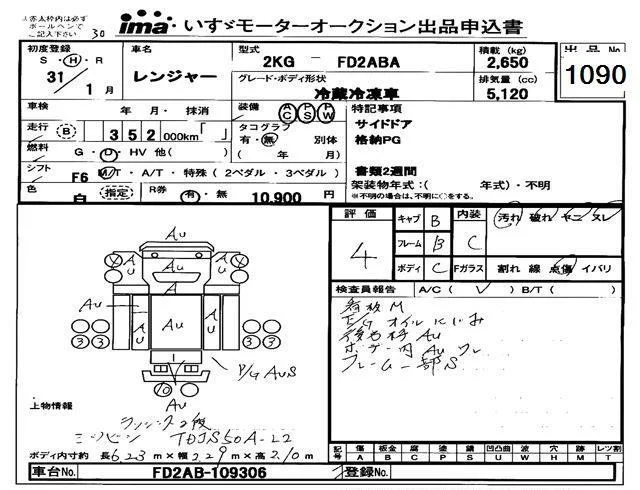 ※赤太枠内は必ず
ボールペンで
ご記入下さい 30
ima いすゞモーターオークション出品申込書
初度登録
S・H・R
31/1月
車名
レンジャー
型式
2KG - FD2ABA
グレード・ボディ形状
冷蔵冷凍車
積載 (kg)
2,650
排気量 (cc)
5,120
出品No
1090
車検 年・月・抹消
走行 B 352000km「 」
燃料 G・D・HV 他( )
シフト F6 M/T・A/T・特殊(2ペダル・3ペダル)
色 白 指定
R券 有・無 10,900円
装備 AC PS PW
タコグラフ
有・無 別体
( 年 月)
特記事項
サイドドア
格納PG
書類2週間
架装物年式:( 年式)・不明
※不明の場合は、不明に○をする。
評価
4
キャブ B
フレーム B
ボディ C
内装 C
汚れ 破れ ヤニ スレ
Fガラス 割れ 線 点傷 イバリ
検査員報告 A/C( ✓ ) B/T( )
看板M
E/G オイルにじみ
後各部 Au
ボデー内 Au ワレ
フレーム一部S
Au
Au
Au
A
Au
Au
Au
Au
3 3
3 3
10
Au
P/G AuS
上物情報
ラッシング2段
ミツビシ TDJS50A-L2
ボディ内寸約 長6.23m×幅2.29m×高2.10m
記号 傷 A 板金 B 腐 C 塗 P 錆 S 凹凸曲 U 波 W 穴 H 跡 M レツ割 T
車台No. FD2AB-109306
登録No.